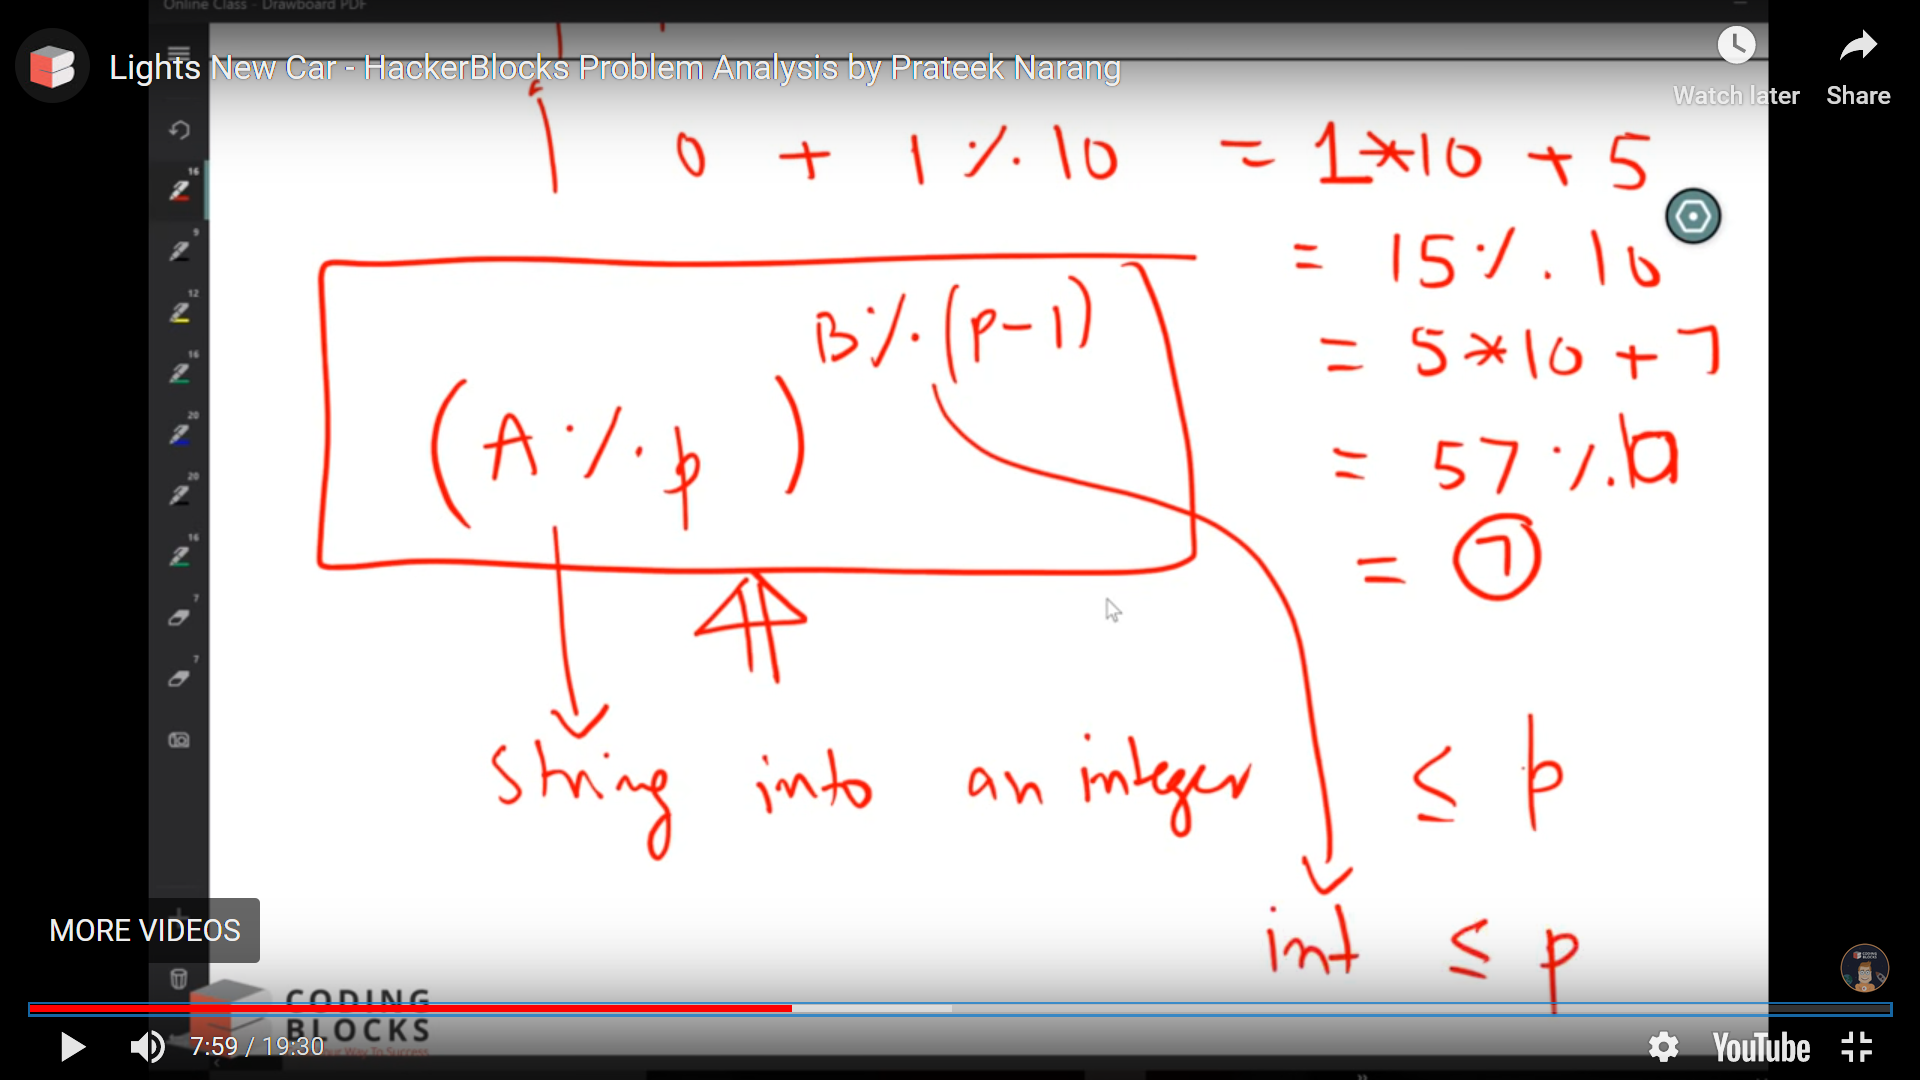 Online Class - Drawboard PDF
Lights New Car - HackerBlocks Problem Analysis by Prateek Narang
Watch later
Share
0 + 1 % 10 = 1*10 + 5
= 15 % 10
= 5*10 + 7
= 57 % 10
= 7
(A % p) B % (p-1)
String into an integer ≤ p
int ≤ p
16
9
12
16
20
20
16
7
7
MORE VIDEOS
CODING
BLOCKS
Your Way To Success
7:59 / 19:30
YouTube